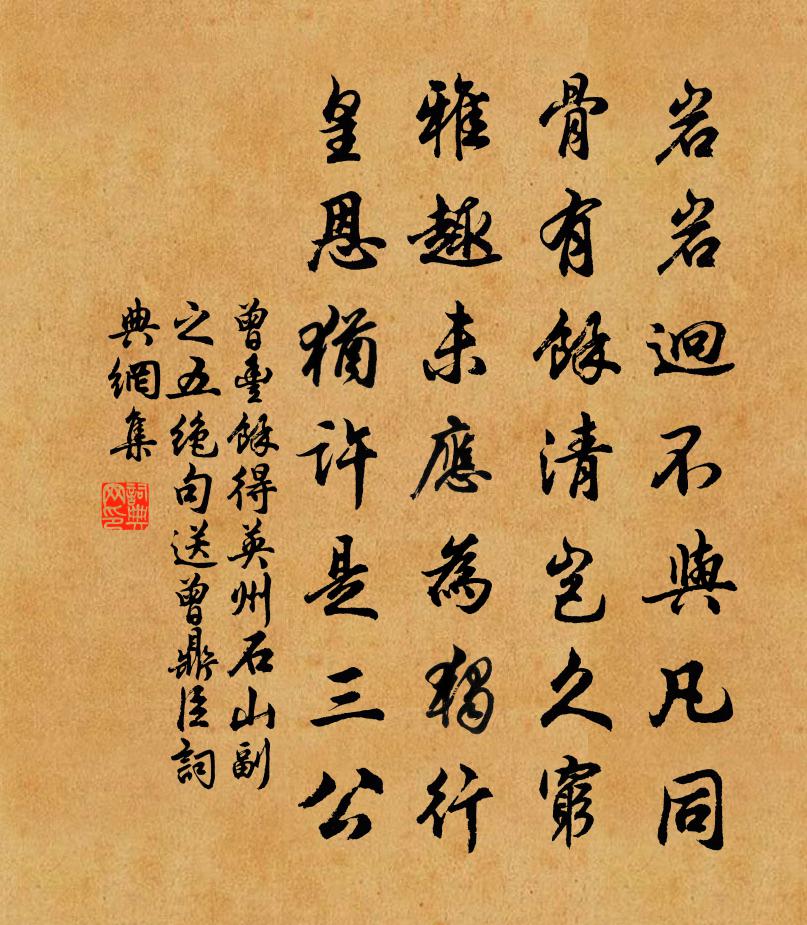 岩岩迥不與凡同
骨有餘清豈久窮
雅趣未應為獨行
皇恩猶許是三公
曾豐餘得英州石山副
之五絶句送曾鼎臣詞
典網集
詞典
网印